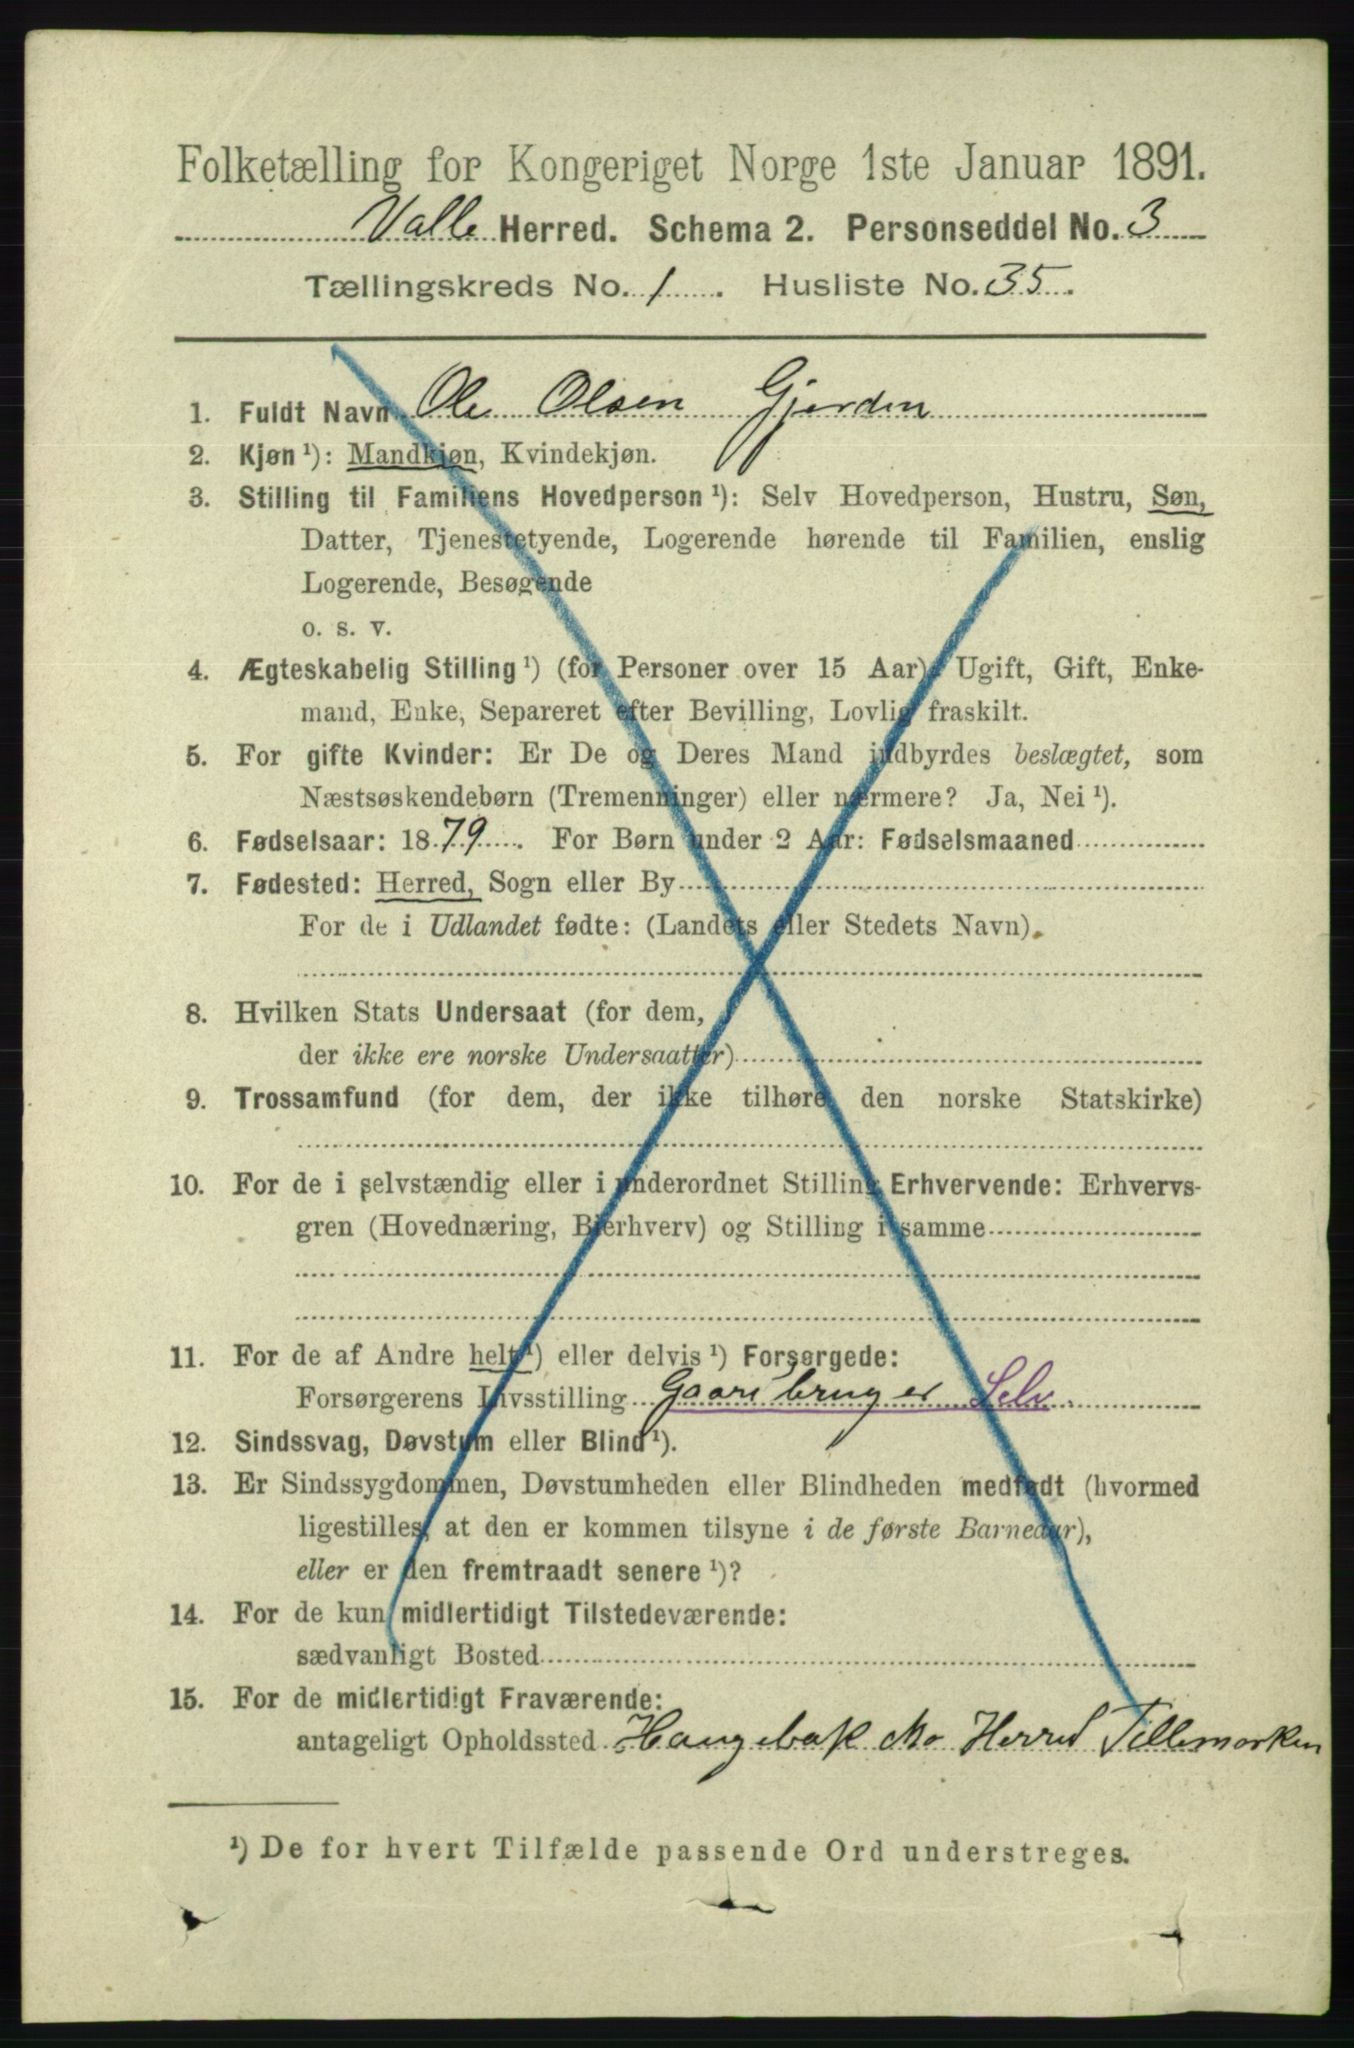 Folketælling for Kongeriget Norge 1ste Januar 1891.
Valle Herred. Schema 2. Personseddel No. 3
Tællingskreds No. 1. Husliste No. 35.
1. Fuldt Navn Ole Olsen Gjerden
2. Kjøn ¹): Mandkjøn, Kvindekjøn.
3. Stilling til Familiens Hovedperson ¹): Selv Hovedperson, Hustru, Søn,
Datter, Tjenestetyende, Logerende hørende til Familien, enslig
Logerende, Besøgende
o. s. v.
4. Ægteskabelig Stilling ¹) (for Personer over 15 Aar): Ugift, Gift, Enke-
mand, Enke, Separeret efter Bevilling, Lovlig fraskilt.
5. For gifte Kvinder: Er De og Deres Mand indbyrdes beslægtet, som
Næstsøskendebørn (Tremenninger) eller nærmere? Ja, Nei ¹).
6. Fødselsaar: 1879. For Børn under 2 Aar: Fødselsmaaned
7. Fødested: Herred, Sogn eller By
For de i Udlandet fødte: (Landets eller Stedets Navn).
8. Hvilken Stats Undersaat (for dem,
der ikke ere norske Undersaatter)
9. Trossamfund (for dem, der ikke tilhøre den norske Statskirke)
10. For de i selvstændig eller i underordnet Stilling Erhvervende: Erhvervs-
gren (Hovednæring, Bierhverv) og Stilling i samme
11. For de af Andre helt ¹) eller delvis ¹) Forsørgede:
Forsørgerens Livsstilling Gaardbruger Selv.
12. Sindssvag, Døvstum eller Blind ¹).
13. Er Sindssygdommen, Døvstumheden eller Blindheden medfødt (hvormed
ligestilles, at den er kommen tilsyne i de første Barneaar),
eller er den fremtraadt senere ¹)?
14. For de kun midlertidigt Tilstedeværende:
sædvanligt Bosted
15. For de midlertidigt Fraværende:
antageligt Opholdssted Mo Herred Tellemarken
¹) De for hvert Tilfælde passende Ord understreges.